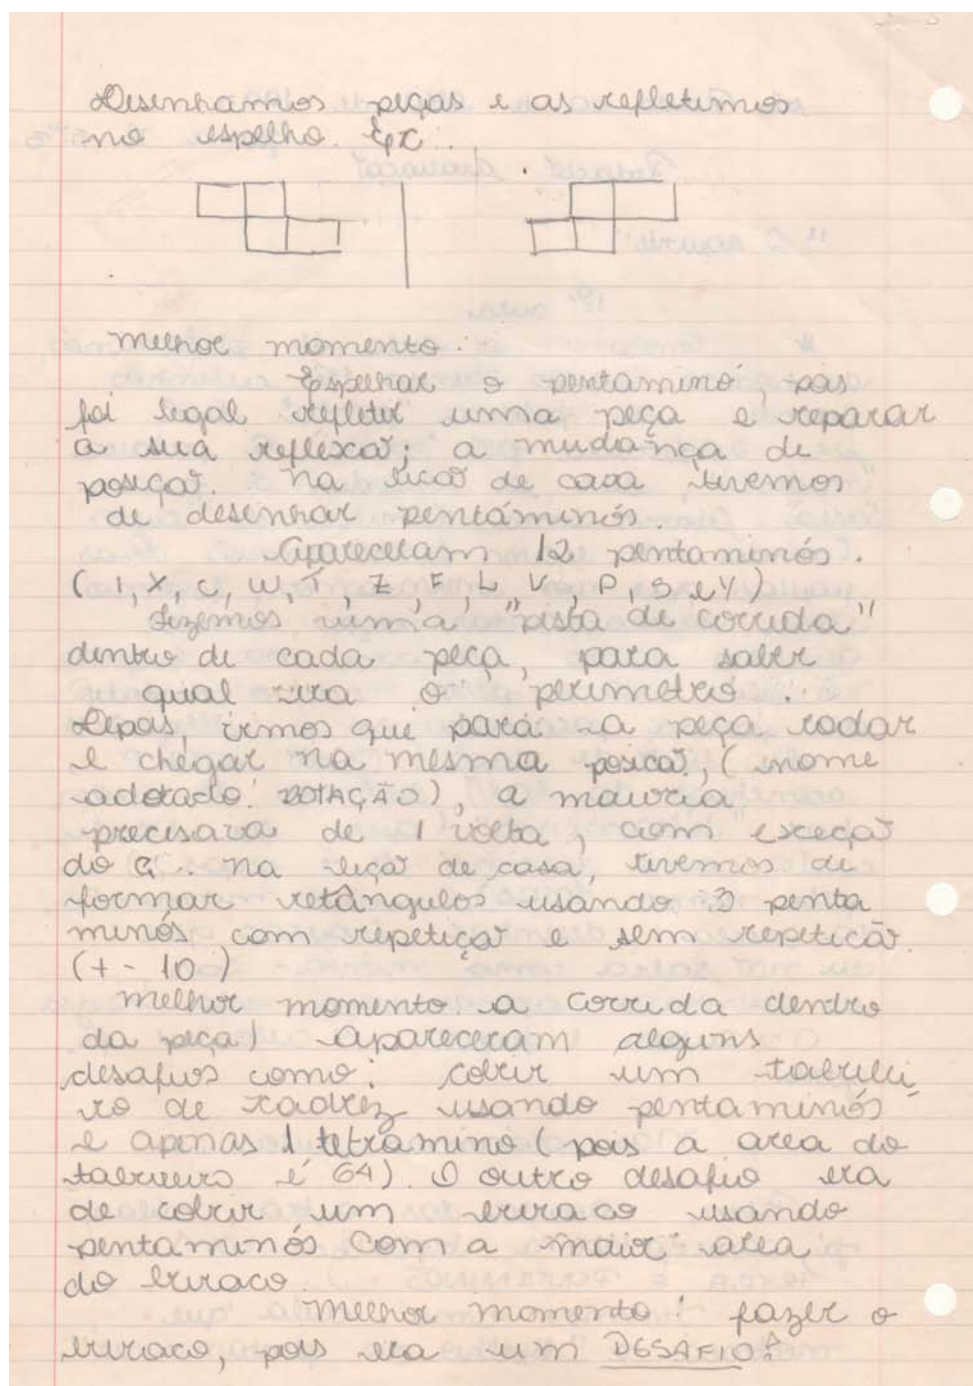 Desenhamos peças e as refletimos
no espelho. Ex:.
melhor momento:
Espelhar o pentaminó, pois
foi legal refletir uma peça e reparar
a sua reflexão; a mudança de
posição. Na lição de casa tivemos
de desenhar pentáminós.
Apareceram 12 pentaminós.
(I, X, C, W, T, Z, F, L, V, P, S e Y)
Fizemos uma "pista de corrida"
dentro de cada peça, para saber
qual era o perímetro.
Depois, vimos que para a peça rodar
e chegar na mesma posição, (nome
adotado: ROTAÇÃO), a maioria
precisava de 1 volta, com exceção
do C. Na lição de casa, tivemos de
formar retângulos usando 3 penta
minós com repetição e sem repetição.
(+ - 10)
melhor momento: a corrida dentro
da peça) apareceram alguns
desafios como: cobrir um tabulei
ro de xadrez usando pentaminós
e apenas 1 tetramino (pois a area do
tabuleiro é 64). O outro desafio era
de cobrir um buraco usando
pentaminós com a maior area
do buraco.
Melhor momento: fazer o
buraco, pois era um DESAFIO!